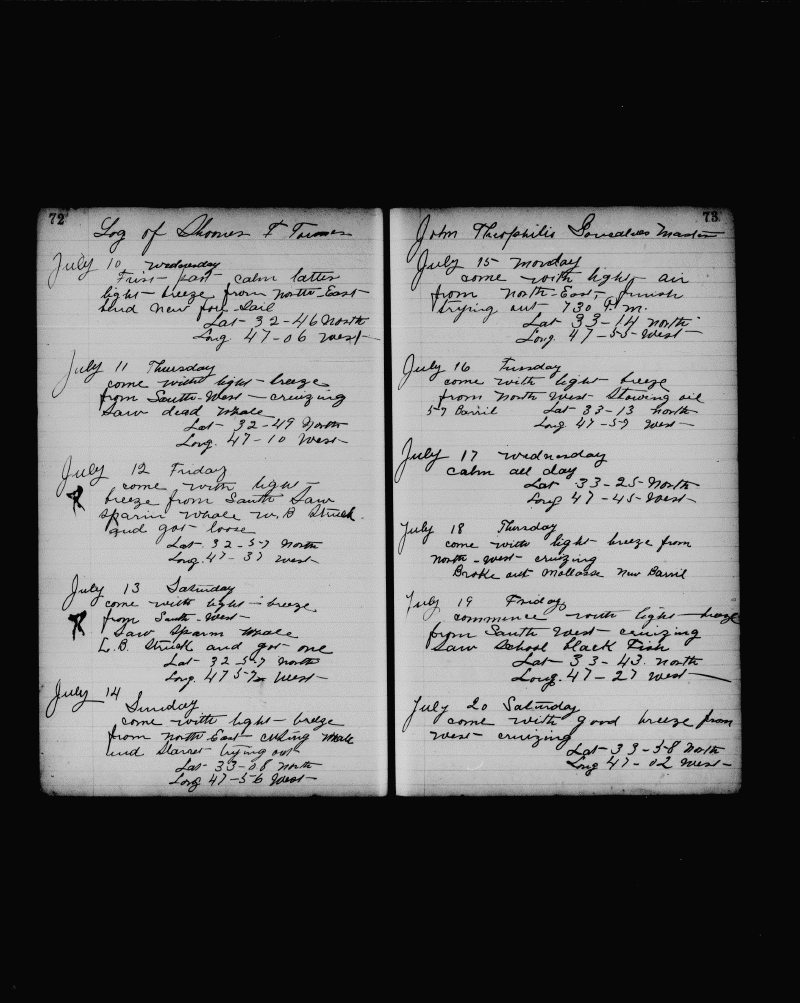 72
Log of Shooner F Turner
July 10 Wednesday
Frist part calm latter
light breeze from North-East
bend New fore Sail
Lat 32-46 North
Long 47-06 West
July 11 Thursday
come with light breeze
from South-West cruizing
Saw dead Whale
Lat 32-49 North
Long. 47-10 West
July 12 Friday
come with light
breeze from South Saw
Sparm Whale W.B Struck
and got loose
Lat 32-57 North
Long. 47-37 West
July 13 Saturday
come with light breeze
from South-West
Saw Sparm Whale
L.B. Struck and got one
Lat 32-57 North
Long. 47 57 West
July 14
Sunday
come with light breeze
from North East cuting Whale
and Starret trying out
Lat 33-08 North
Long 47-56 West
73
John Theophilis Gonsalves Master
July 15 Monday
come with light air
from North-East finish
trying out 730 P.M.
Lat 33-14 North
Long. 47-55 West
July 16 Tusday
come with light breeze
from North West Stowing oil
57 Barril Lat 33-13 North
Long. 47-59 West
July 17 Wednesday
calm all day
Lat 33-25 North
Long 47-45 West
July 18 Thursday
come with light breeze from
North-West cruizing
Broke out Mollasse New Barril
July 19 Friday
commence with light breeze
from South West cruizing
Saw School black Fish
Lat 33-43 North
Long. 47-27 West
July 20 Saturday
come with good breeze from
West cruizing
Lat 33-58 North
Long 47-02 West